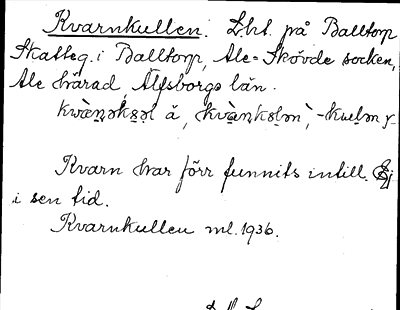 Kvarnkullen. Lht. på Balltorp
Skatteg. i Balltorp, Ale-Skövde socken,
Ale härad Älfsborgs län.
Kvarn har förr funnits intill. Ej
i sen tid.
Kvarnkullen ml. 1936.